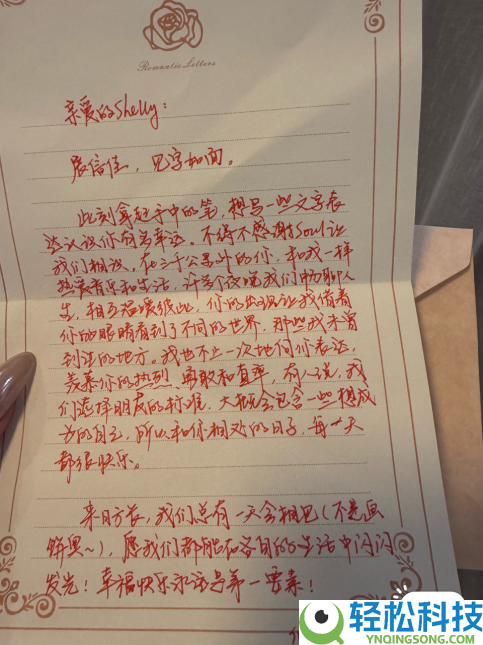 Romantic Letters
亲爱的Shelly:
展信佳，见字如面。
此刻拿起手中的笔，想写一些文字表
达认识你有多幸运。不得不感谢Soul让
我们相识。在三千公里外的你，和我一样
热爱音乐和生活，许多个夜晚我们畅聊人
生，相互温暖彼此，你的出现让我借着
你的眼睛看到了不同的世界，那些我未曾
到过的地方。我也不止一次地向你表达，
羡慕你的热烈、勇敢和直率，有人说，我
们选择朋友的标准，大概会包含一些想成
为的自己，所以和你相处的日子，每一天
都很快乐。
来日方长，我们总有一天会相见(不是画
饼果~)，愿我们都能在各自的生活中闪闪
发光！幸福快乐永远是第一要素！
轻松科技
YNQINGSONG.COM